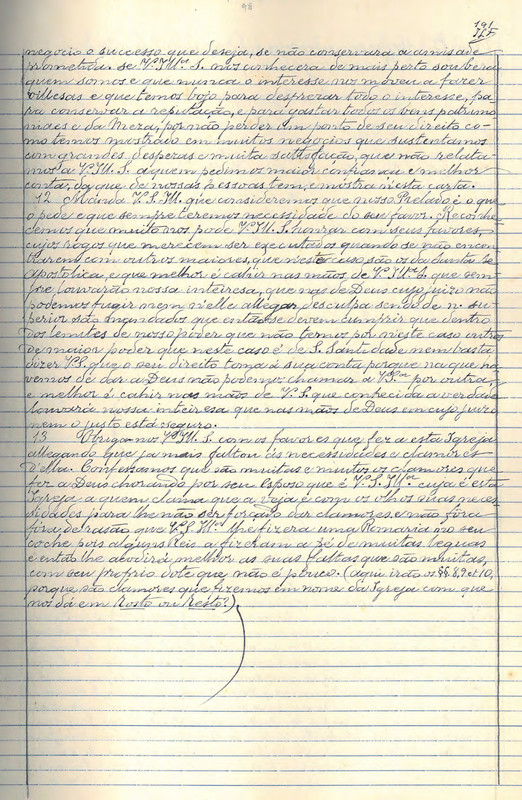 98
191
negocio o successo que deseja, se não conservara a amisade
promettida. Se V. Ill.ma S. nos conhecera de mais perto soubera
quem somos e que nunca o interesse nos moveu a fazer
villesas e que temos bojo para desprezar todo o interesse, pa-
ra conservar a reputação, e para gastar todos os bens patrimo
niaes e da Meza, por não perder um ponto de seu direito co-
mo temos mostrado em muitos negocios que sustentamos
com grandes despezas e muita satisfação, que não relata-
mos a V. Ill.ma S. a quem pedimos maior confiança e melhor
conta, da que de nossas pessoas tem, e mostra n'esta carta.
12 Manda V. S. Ill. que consideremos que nosso Prelado é o que
o pode e que sempre teremos necessidade do seu favor. Reconhe-
cemos que muito nos pode V. Ill. S. honrar com seus favores,
cujos rogos que merecem ser executados quando se não encon
trarem com outros maiores, que n'este caso são os da Santa Sé
Apostolica, e que melhor é cahir nas mãos de V. Ill.ma S. que sem-
pre louvarão nossa inteiresa, que nas de Deus cujo juizo não
podemos fugir nem n'elle allegar desculpa sendo de n. su-
perior são mandados que então se devem cumprir que dentro
dos lemites de nosso poder que não temos por n'este caso outros
de maior poder que neste caso é de S. Santidade nem basta
dizer V. S. que o seu direito toma á sua conta porque na que ha-
vemos de dar a Deus não podemos chamar a V. S.ria por outra,
e melhor é cahir nas mãos de V. S. que conhecida a verdade
louvará nossa inteiresa que nas mãos de Deus em cujo juizo
nem o justo está seguro.
13 Obriga-nos V. Ill. S. com os favores que fez a esta Igreja
allegando que já mais faltou ás necessidades e clamores
d'ella. Confessamos que são muitas e muitos os clamores que
fez a Deus chorando por seu Esposo que é V. S. Ill.ma cuja é esta
Igreja a quem clama que a veja é com os olhos suas neces-
sidades para lhe não ser forçado dar clamores, e não fora
fora de rasão que V. S. Ill.ma lhe fizera uma Romaria no seu
coche pois alguns Reis a fizeram a pé de muitas leguas
e então lhe acodirá melhor as suas faltas que são muitas,
com seu proprio dote que não é pouco. (aqui irão os §§ 8, 9 e 10,
porque são clamores que fizemos em nome da Igreja com que
nos dá em Rosto ou Resto?)